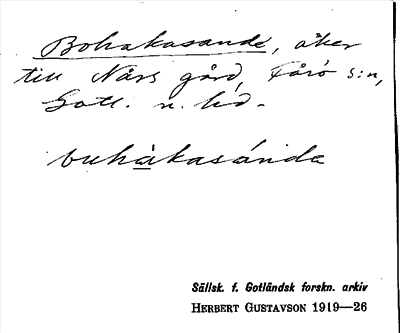 Bohakasande, åker
till Nårs gård, Fårö s:n,
Gotl. n. hd.
buhàkasánda
Sällsk. f. Gotländsk forskn. arkiv
HERBERT GUSTAVSON 1919—26